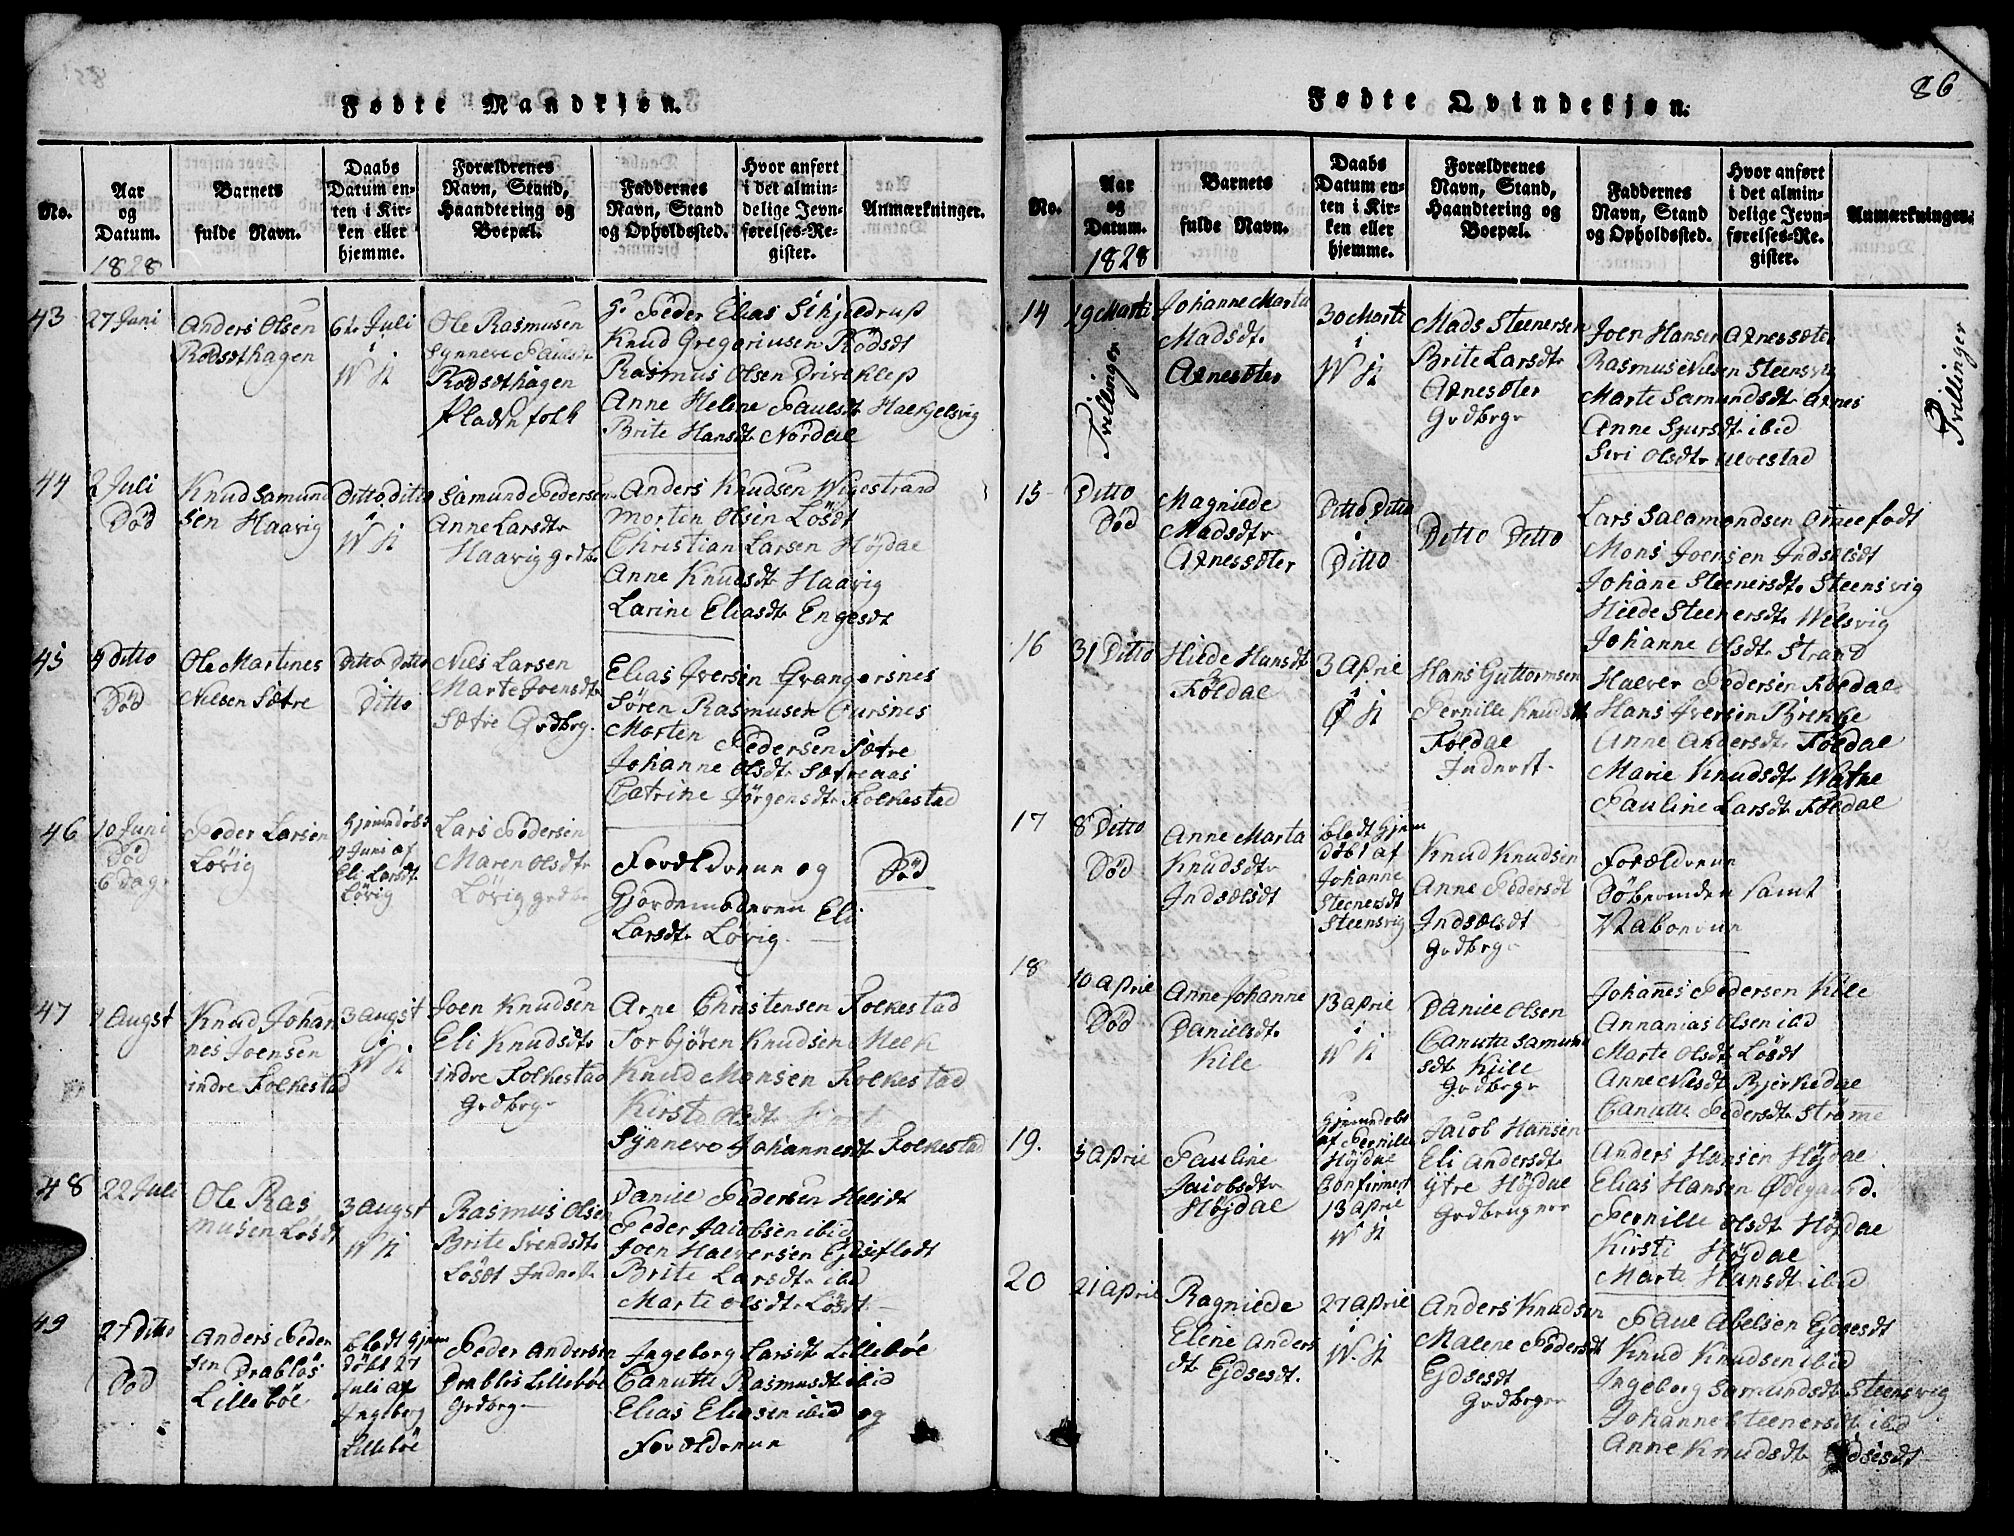 Fødte Mandkjøn.
No.
Aar
og
Datum.
1828
Barnets
fulde Navn.
Daabs
Datum en-
ten i Kir-
ken eller
hjemme.
Forældrenes
Navn, Stand,
Haandtering og
Boepæl.
Faddernes
Navn, Stand
og Opholdssted.
Hvor anført
i det almin-
delige Jevn-
førelses-Re-
gister.
Anmærkninger.
43
27 Juni
Anders Olsen
Rødsdthagen
6te Juli
i
W K
Ole Rasmusen
Synneve Paulsdtr
Rødsdthagen
Pladsn folk
Hr Peder Elias Schjedrup
Knud Gregoriusen Rødsdt
Rasmus Olsen Driveklep
Anne Helene Paulsdtr
Brite Hansdtr Nordal
44
2 Juli
Død
Knud Samund
sen Haavig
Ditto Ditto
i
W K
Samund Pedersen
Anne Larsdtr
Haavig grdbr
Anders Knudsen Wigestrand
Morten Olsen Løsdt
Christian Larsen Højdal
Anne Knudsdtr Haavig
Larine Eliasdtr Engesdt
45
4 Ditto
Død
Ole Martines
Nilsen Sætre
Ditto Ditto
Ditto
Niels Larsen
Marte Joensdtr
Sætre Grdbrg.
Elias Iversen Qvangersnes
Søren Rasmusen Aursnes
Morten Pedersen Sætre
Johanne Olsdtr Sætreaas
Catrine Jørgensdtr Folkestad
46
10 Juni
Død
6 Dage
Peder Larsen
Løvig
Hjemdøbt
Juni af
Eli Larsdtr
Løvig
Lars Pedersen
Maren Olsdtr
Løvig grdbr
Forældrenne og
Gjordemoderen Eli
Larsdtr Løvig.
Død
47
1 Augst
Knud Johan
nes Joensen
indre Folkestad
3 Augst
i
W K
Joen Knudsen
Eli Knudsdtr
indre Folkestad
Grdbrg.
Arne Christensen Folkestad
Torbjøren Knudsen Melk
Knud Monsen Folkestad
Kirsti Olsdtr
Synneve Johannesdt Folkestad
48
22 Juli
Ole Ras
musen Løsdt
3 Augst
W K
Rasmus Olsen
Brite Svendsdtr
Løsdt Inderst
Daniel Pedersen
Peder Jacobsen ibid
Joen Halvorsen
Brite Larsdtr ibid
Marte Olsdtr Løsdt
49
27 Ditto
Død
Anders Peder
sen Drabløs
Lillebøe
blodt hjem
døbt 27
Juli af
Ingeborg
Lillebøe
Peder Andersen
Drabløs Lillebøe
Grdbrg
Ingeborg Larsdtr Lillebøe
Canutte Rasmusdt ibid
Elias Eliasen ibid og
Forældrenne
Fødte Qvindekjøn.
86
No.
Aar
og
Datum.
1828
Barnets
fulde Navn.
Daabs
Datum en-
ten i Kir-
ken eller
hjemme.
Forældrenes
Navn, Stand,
Haandtering og
Boepæl.
Faddernes
Navn, Stand
og Opholdssted.
Hvor anført
i det almin-
delige Jevn-
førelses-Re-
gister.
Anmærkninger.
14
19 Marti
Tvillinger
Johanne Marta
Madsdtr
Aarnesæter
30 Marti
i
W K
Mads Steenersen
Brite Larsdtr
Aarnesæter
Grdbrgr
Joen Hansen Aarnessæter
Rasmus Nilsen Steensvig
Marte Samundsdt Aarnes
Anne Sjursdtr ibid
Siri Olsdtr Ulvestad
Tvillinger
15
Ditto
Død
Magnilde
Madsdtr
Aarnessæter
Ditto Ditto
i
Ditto
Ditto Ditto
Lars Salamondsen
Mons Joensen Indselsdt
Johane Steenersdtr Steensvig
Hilde Steenersdtr Welsvig
Johanne Olsdtr Strand
16
31 Ditto
Hilde Hansdt
Føldal
3 April
i
K
Hans Guttormsen
Pernille Knudsdtr
Føldal
Inderst
Halver Pedersen Føldal
Hans Iversen Brekke
Anne Andersdtr Føldal
Marie Knudsdtr Watne
Pauline Larsdtr Føldal
17
8 Ditto
Død
Anne Marta
Knudsdtr
Indselsdt
blodt hjem
døbt af
Johanne
Steenersdt
Steensvig
Knud Knudsen
Anne Pedersdt
Indselsdt
Grdbrgr
Forældrenne
Døberinden samt
Naboerne
18
10 April
Død
Anne Johanne
Danielsdtr
Kile
13 April
i
W K
Daniel Olsen
Canutte Samund
sdtr Kiile
Grdbrgr
Johannes Pedersen Kile
Annanias Olsen ibid
Marte Olsdtr Løsdt
Anne Nilsdtr Bjerkedal
Canutte Pedersdtr Strømme
19.
5 April
Pauline
Jacobsdtr
Højdal
Hjemdøbt
af Pernille
Højdal
Confirmert
13 April
W K
Jacob Hansen
Eli Andersdtr
ytre Højdal
Grdbrugere
Anders Hansen Højdal
Elias Hansen Ødegaard.
Pernille Olsdt Højdal
Kirsti Højdal
Marte Hansdtr ibid
20
21 April
Ragnilde
Eline Anders
dtr Ejdsesdt.
27 April
i
W K
Anders Knudsen
Malene Pedersdt
Ejdsesdt
Grdbrger
Paul Abelsen Ejdsesdt
Knud Knudsen ibid
Ingeborg Samundsdt Steensvig
Johanne Steenersdt ibid
Anne Knudsdtr Ejdsesdt